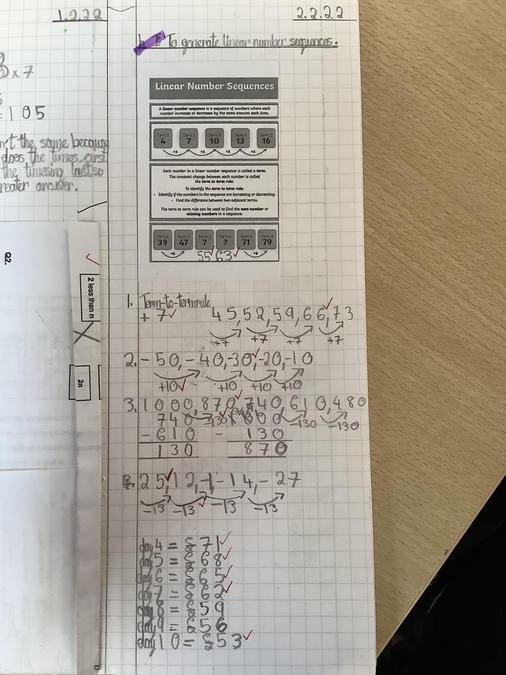 1.2.22
x 7
105
n't the same because
does the times first
the timesing last so
greater answer.
Q2.
2 less than n
2n
2.2.22
To generate linear number sequences.
Linear Number Sequences
A linear number sequence is a sequence of numbers where each
number increases or decreases by the same amount each time.
4 7 10 13 16
+3 +3 +3 +3
Each number in a linear number sequence is called a term.
The constant change between each number is called
the term to term rule.
To identify the term to term rule:
• Identify if the numbers in the sequence are increasing or decreasing.
• Find the difference between two adjacent terms.
The term to term rule can be used to find the next number or
missing numbers in a sequence.
39 47 ? ? 71 79
55 63
1. Term-to-term rule
+ 7 45,52,59,66,73
+7 +7 +7 +7
2. -50,-40,-30,-20,-10
+10 +10 +10 +10
3. 1000,870,740,610,480
740 -130 1000 -130 -130
- 610 - 130
130 870
25,12,-1,-14,-27
-13 -13 -13 -13
day 4 = 71
day 5 = 68
day 6 = 65
day 7 = 62
day 8 = 59
day 9 = 56
day 10 = 53